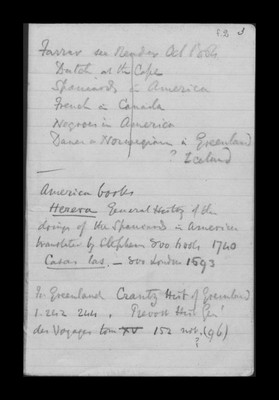 Farrar see Reader Oct
Dutch at the Cape
Spaniards in America
French in Canada
Negroes in America
Danes or Norwegians in Greenland
? Iceland
America books
Herera General History of the
doings of the Spaniards in America
translated by Stephens 8vo books 1740
Casas las. — 8vo London 1593
In Greenland Crantz Hist of Greenland
1.242 244, Prevost Hist Gen
des Voyages tom XV 152 not. (96)
?